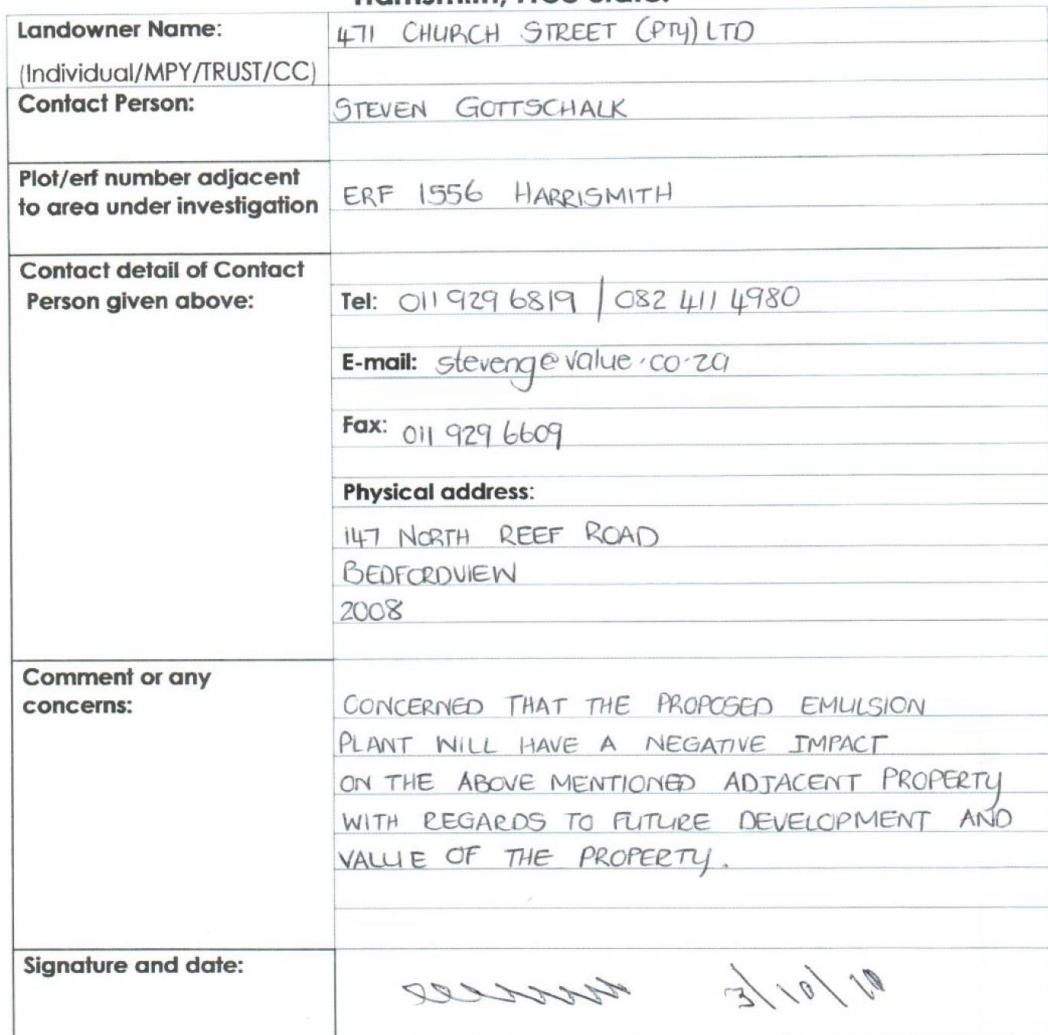 Landowner Name: 471 CHURCH STREET (PTY) LTD
(Individual/MPY/TRUST/CC)
Contact Person: STEVEN GOTTSCHALK
Plot/erf number adjacent
to area under investigation ERF 1556 HARRISMITH
Contact detail of Contact
Person given above: Tel: 011 929 6819 / 082 411 4980
E-mail: steveng@value.co.za
Fax: 011 929 6609
Physical address:
147 NORTH REEF ROAD
BEDFORDVIEW
2008
Comment or any
concerns: CONCERNED THAT THE PROPOSED EMULSION
PLANT WILL HAVE A NEGATIVE IMPACT
ON THE ABOVE MENTIONED ADJACENT PROPERTY
WITH REGARDS TO FUTURE DEVELOPMENT AND
VALUE OF THE PROPERTY.
Signature and date: 3/10/